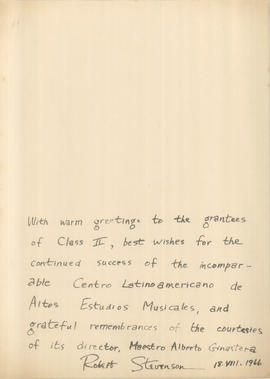 With warm greetings to the grantees
of Class II, best wishes for the
continued success of the incompar-
able Centro Latinoamericano de
Altos Estudios Musicales, and
grateful remembrances of the courtesies
of its director, Maestro Alberto Ginastera
Robert Stevenson 18.VIII.1966